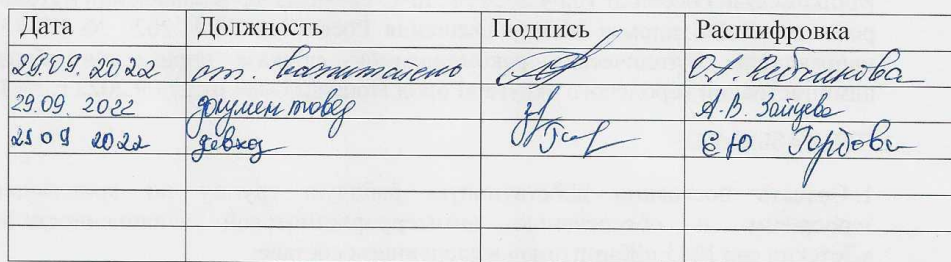 Дата Должность Подпись Расшифровка
29.09.2022 ст. воспитатель О.А.
29.09.2022 документовед А.В. Зайцева
29 09 2022 завхоз Е Ю Горбова